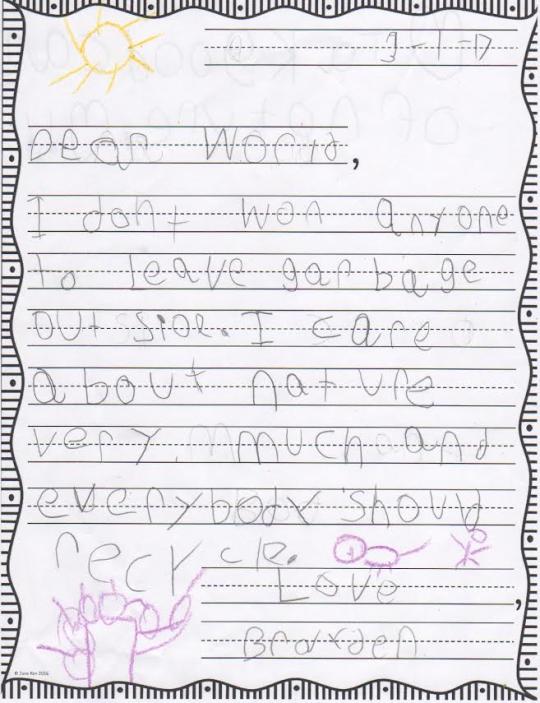 3-1-17
Dear World,
I dont won anyone
to Leave garbage
out side. I care
about nature
very much and
everybody shoud
recycle.
Love,
Braxden